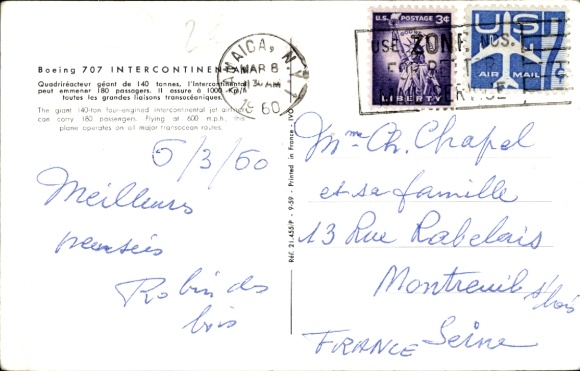 Boeing 707 INTERCONTINENTAL
Quadriréacteur géant de 140 tonnes, l'Intercontinental
peut emmener 180 passagers. Il assure à 1000 Km/h
toutes les grandes liaisons transocéaniques.
The giant 140-ton four-engined intercontinental jet airliner
can carry 180 passengers. Flying at 600 m.p.h., this
plane operates on all major transocean routes.
5/3/60
Meilleurs
pensées
Robin des
bois
Réf. 21.455/P - 9-59 - Printed in France - IVO
JAMAICA, N.Y.
MAR 8
AM
1960
U.S. POSTAGE 3¢
LIBERTY
US
AIR MAIL
7¢
USE ZONE NOS.
Mme Ch. Chapel
et sa famille
13 Rue Rabelais
Montreuil s/bois
Seine
FRANCE